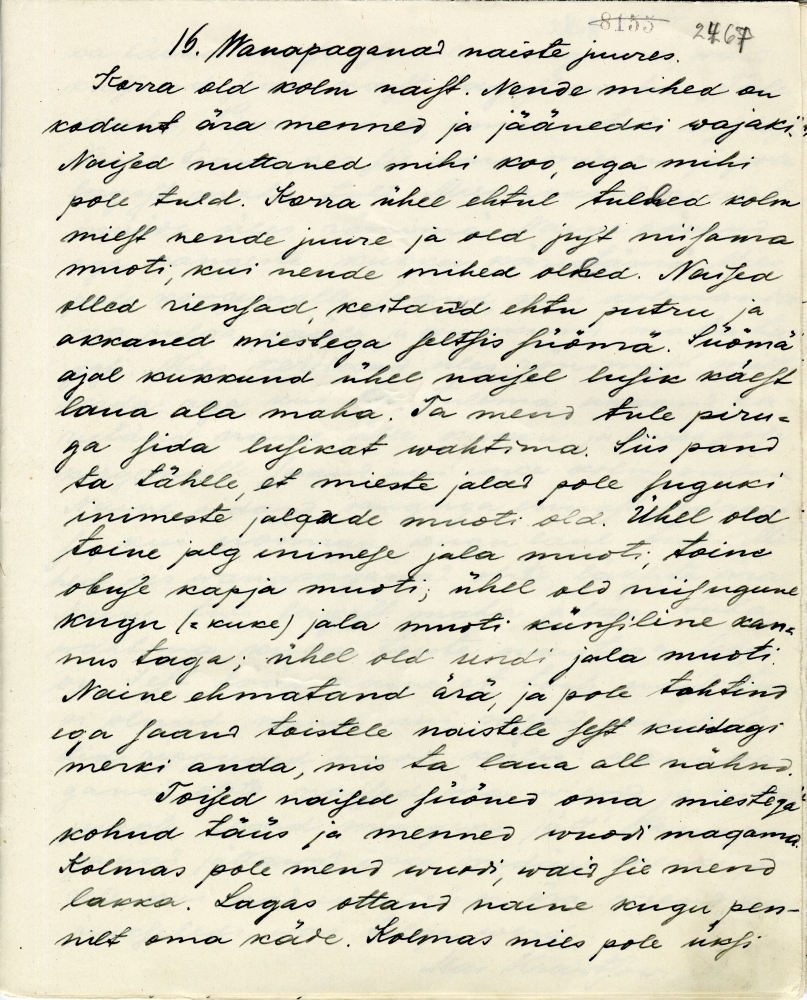 8155 2467
16. Wanapaganad naiste juures.
Korra old kolm naist. Nende mihed on
kodunt ära menned ja jäänedki wajaki.
Naised nuttaned mihi koo, aga mihi
pole tuld. Korra ühel ehtul tulned kolm
miest nende juure ja old just niisama
muoti, kui nende mihed olned. Naised
olled riemsad, keitand ehtu putru ja
akkaned miestega seltsis süömä. Süömä
ajal kukkund ühel naisel lusik käest
laua ala maha. Ta mend tule piru=
ga sida lusikat wahtima. Siis pand
ta tähele, et mieste jalad pole suguki
inimeste jalgade muoti old. Ühel old
toine jalg inimese jala muoti, toine
obuse kapja muoti; ühel old niisugune
kugu (= kuke) jala muoti künsiline kan=
nus taga; ühel old undi jala muoti.
Naine ehmatand ärä, ja pole tahtind
ega saand toistele naistele sest kuidagi
merki anda, mis ta laua all nähnd.
Toised naised süöned oma miestega
kohud täüs ja menned wuodi magama.
Kolmas pole mend wuodi, waid sie mend
lakka. Lagas ottand naine kugu pen-
nilt oma käde. Kolmas mies pole üksi